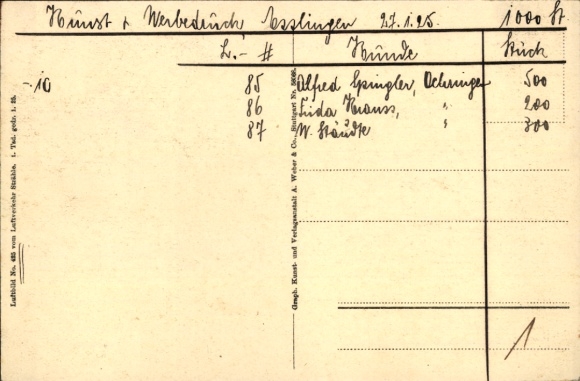 Kunst & Werbedruck Esslingen 27.1.25. 1000 St.
L.- # Kunde Stück
-10 85 Alfred Spingler, Oehringen 500
86 Frida Krauss, " 200
87 W. Stäudte " 300
1
Luftbild No. 485 vom Luftverkehr Strähle. t. Tad. gedr. 1. 25.
Graph. Kunst- und Verlagsanstalt A. Weber & Co., Stuttgart Nr.